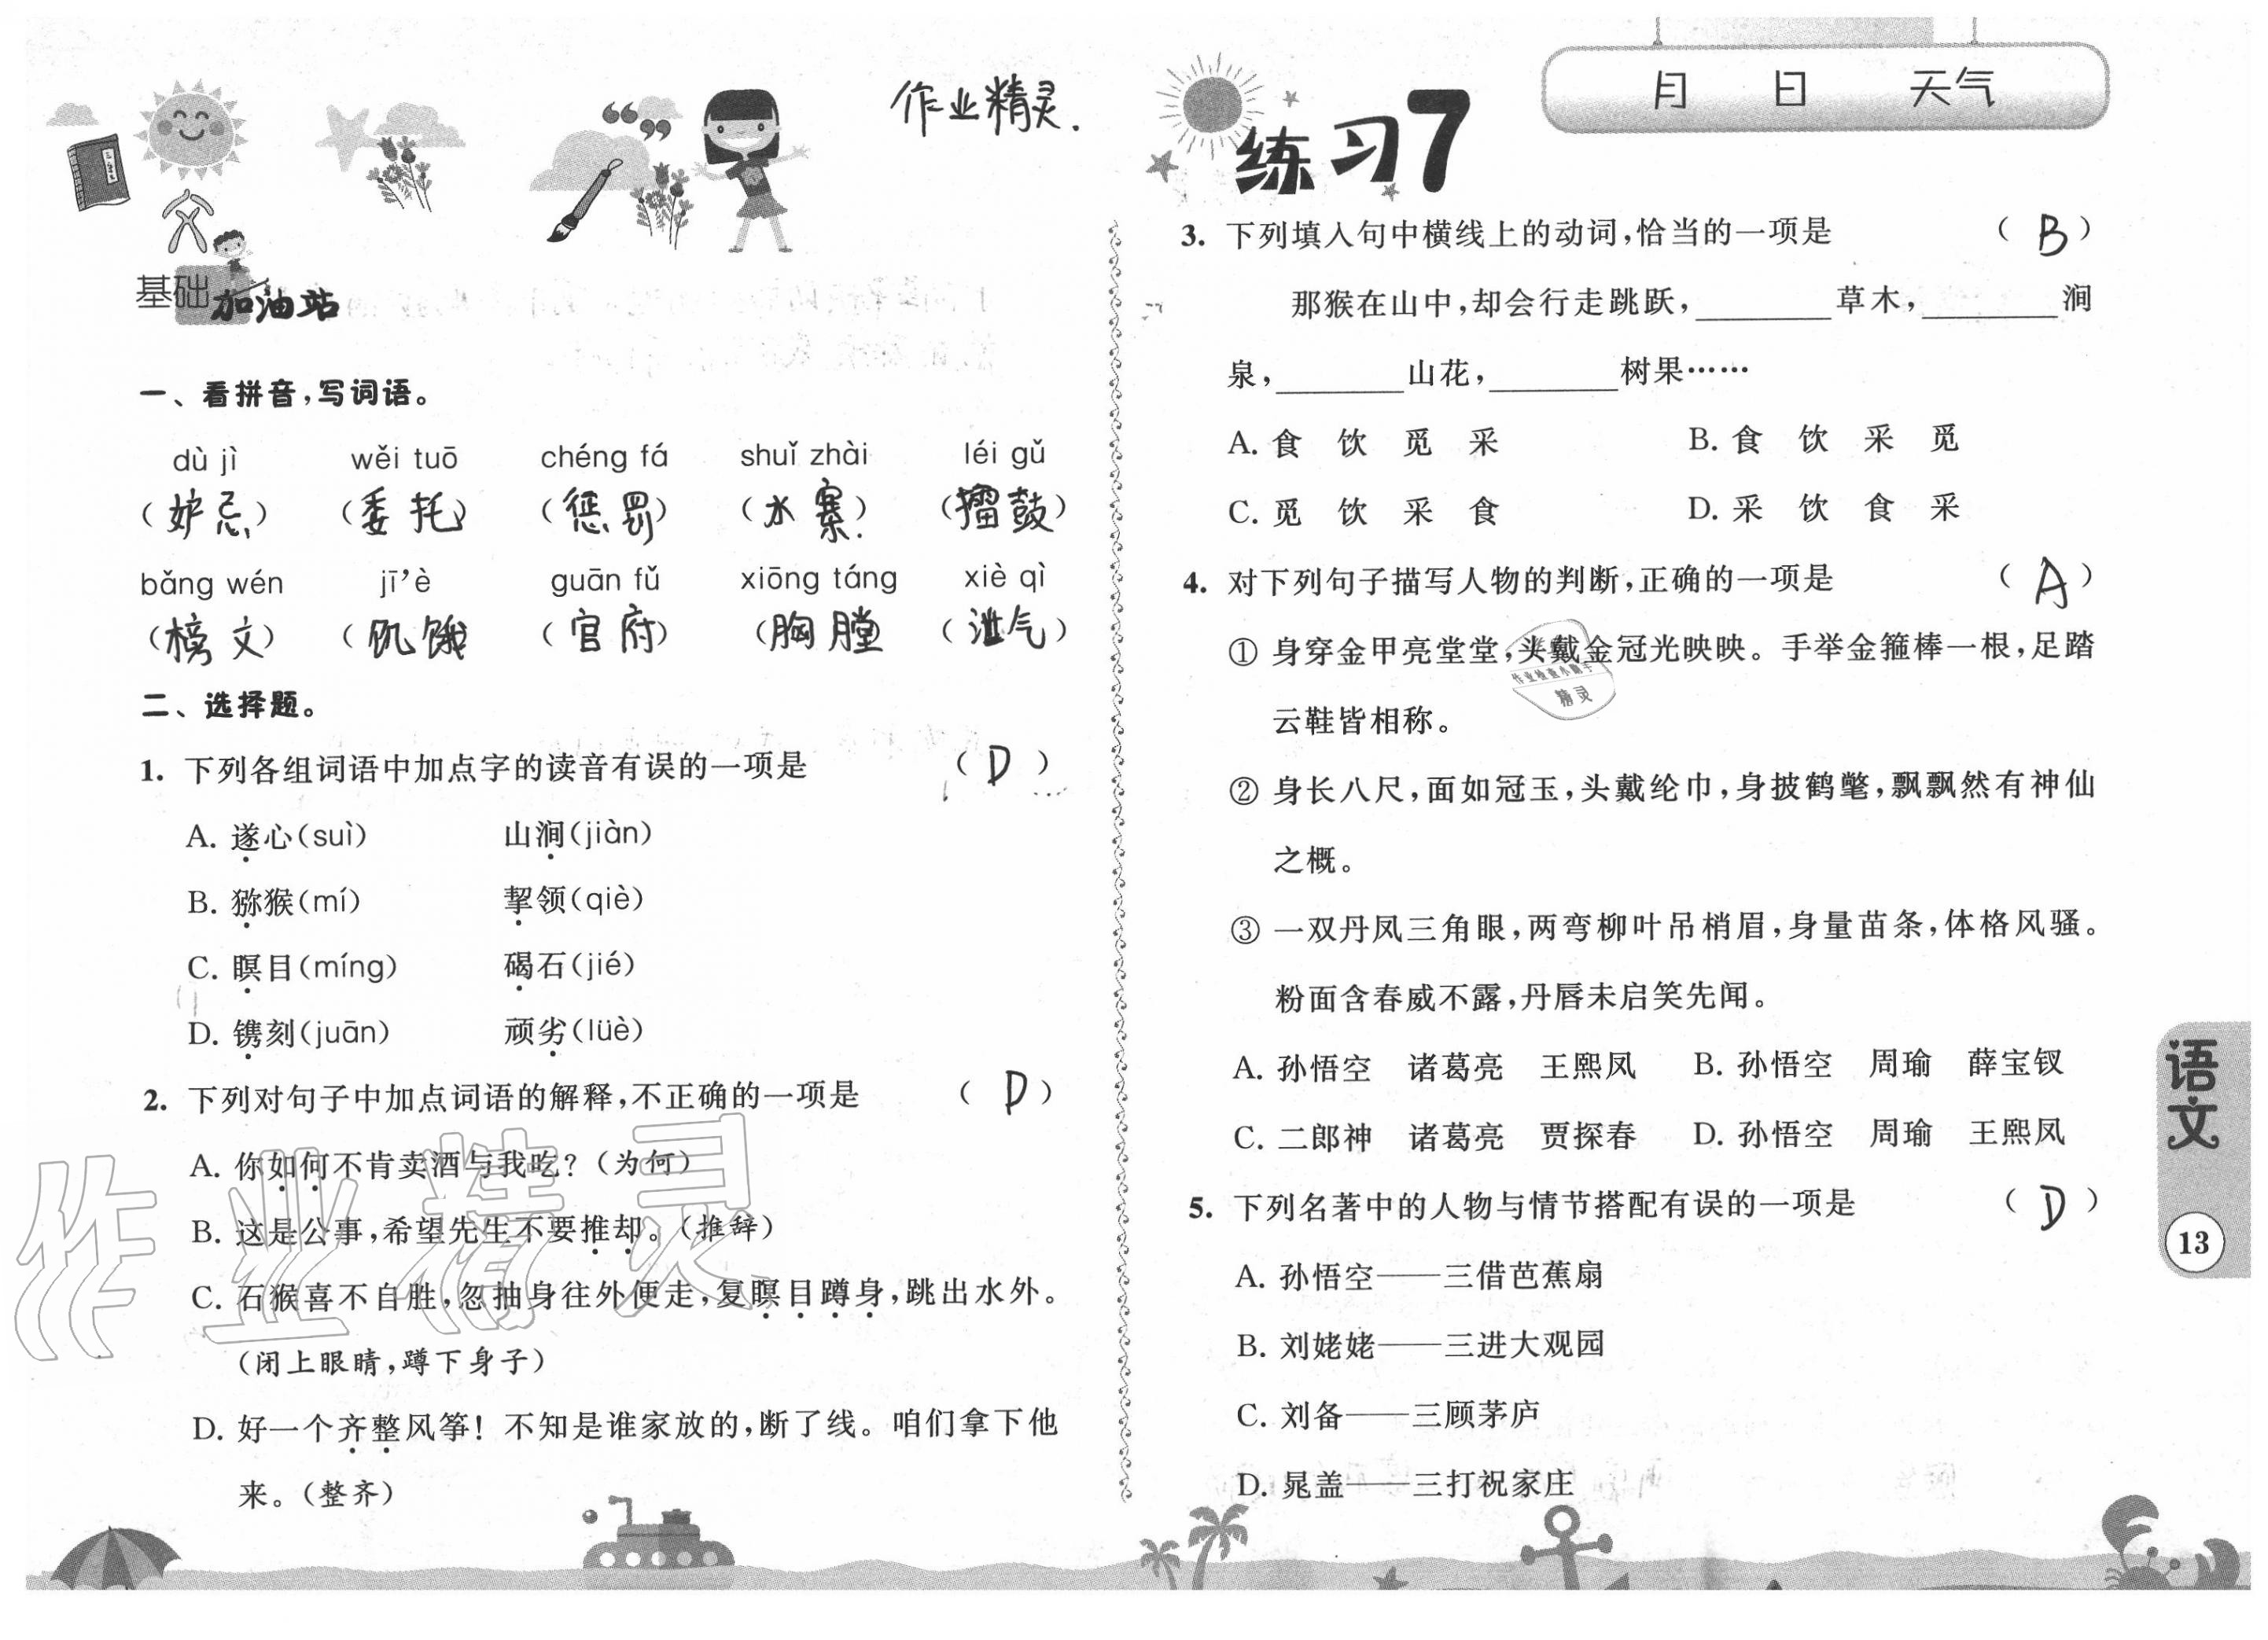 作业精灵.
练习7
月 日 天气
文
基础加油站
一、看拼音,写词语。
dù jì wěi tuō chéng fá shuǐ zhài léi gǔ
(妒忌) (委托) (惩罚) (水寨.) (擂鼓)
bǎng wén jī'è guān fǔ xiōng táng xiè qì
(榜文) (饥饿 (官府) (胸膛 (泄气)
二、选择题。
1. 下列各组词语中加点字的读音有误的一项是 (D)
A. 遂心(suì) 山涧(jiàn)
B. 猕猴(mí) 挈领(qiè)
C. 瞑目(míng) 碣石(jié)
D. 镌刻(juān) 顽劣(lüè)
2. 下列对句子中加点词语的解释,不正确的一项是 (D)
A. 你如何不肯卖酒与我吃?(为何)
B. 这是公事,希望先生不要推却。(推辞)
C. 石猴喜不自胜,忽抽身往外便走,复瞑目蹲身,跳出水外。
(闭上眼睛,蹲下身子)
D. 好一个齐整风筝! 不知是谁家放的,断了线。咱们拿下他
来。(整齐)
3. 下列填入句中横线上的动词,恰当的一项是 (B)
那猴在山中,却会行走跳跃,________草木,________涧
泉,________山花,________树果……
A. 食 饮 觅 采 B. 食 饮 采 觅
C. 觅 饮 采 食 D. 采 饮 食 采
4. 对下列句子描写人物的判断,正确的一项是 (A)
① 身穿金甲亮堂堂,头戴金冠光映映。手举金箍棒一根,足踏
云鞋皆相称。
② 身长八尺,面如冠玉,头戴纶巾,身披鹤氅,飘飘然有神仙
之概。
③ 一双丹凤三角眼,两弯柳叶吊梢眉,身量苗条,体格风骚。
粉面含春威不露,丹唇未启笑先闻。
A. 孙悟空 诸葛亮 王熙凤 B. 孙悟空 周瑜 薛宝钗
C. 二郎神 诸葛亮 贾探春 D. 孙悟空 周瑜 王熙凤
5. 下列名著中的人物与情节搭配有误的一项是 (D)
A. 孙悟空——三借芭蕉扇
B. 刘姥姥——三进大观园
C. 刘备——三顾茅庐
D. 晁盖——三打祝家庄
语文
13
作业精灵